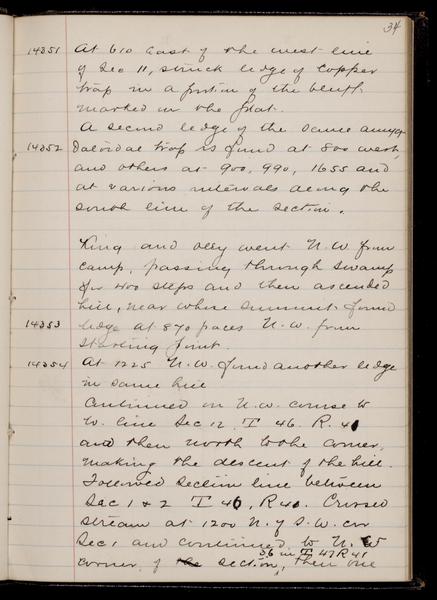 34
14351 At 610 East of the west line
of Sec 11, struck ledge of copper
trap in a portion of the bluff
marked on the plat.
A second ledge of the same amyg
14352 daloidal trap is found at 800 west,
and others at 900, 990, 1655 and
at various intervals along the
south line of the section.
King and went N.W from
camp, passing through swamp
for 400 steps and then ascended
hill, near whose summit found
14353 ledge at 870 paces N.W. from
starting point.
14354 At 1225 N.W. found another ledge
in same hill
Continued on N.W. course to
W. line Sec 12, T 46. R. 41
and then north to the corner,
making the descent of the hill.
Followed section line between
Sec 1 & 2 T 46, R 40. Crossed
stream at 1200 N. of S.W. cor
Sec 1 and continued to N.W
36 in T 47 R 41
corner of the section, then one